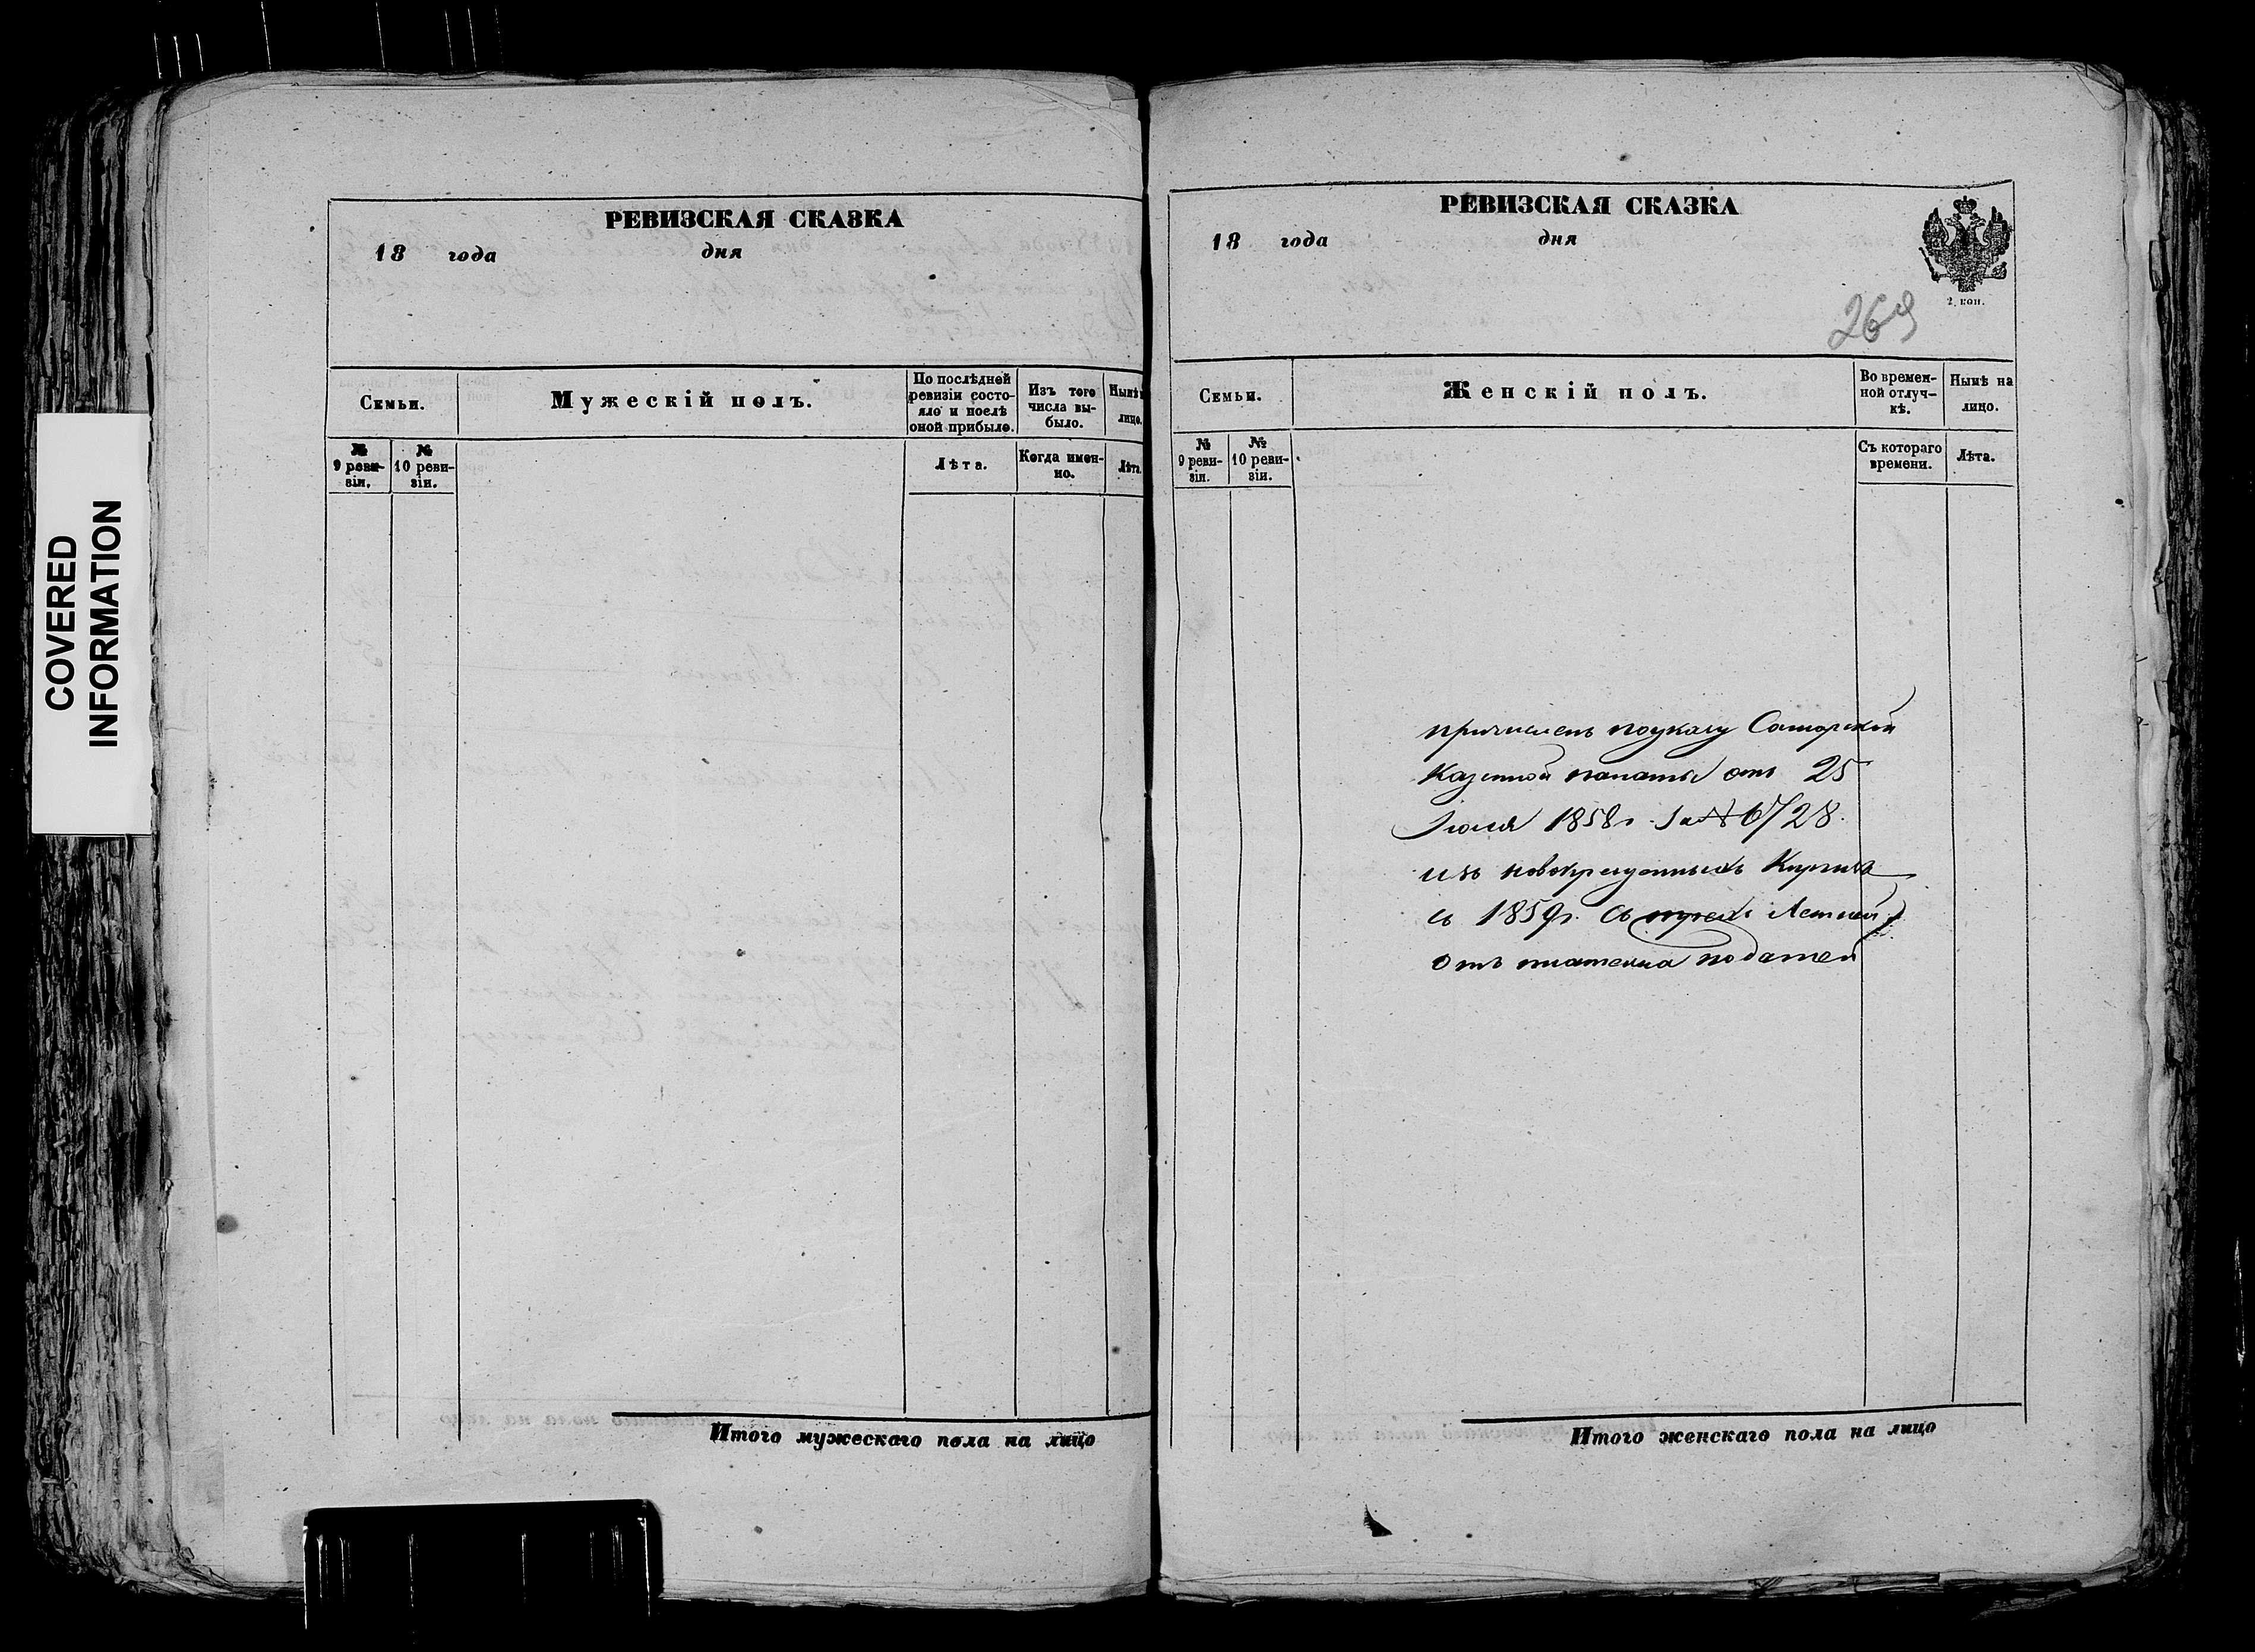 COVERED
INFORMATION
РЕВИЗСКАЯ СКАЗКА
18 года дня
Семьи.
Мужескій полъ.
По послѣдней
ревизіи состо-
яло и послѣ
оной прибыло.
Изъ того
числа вы-
было.
Нынѣ
лицо.
№
9 реви-
зіи.
№
10 реви-
зіи.
Лѣта.
Когда имен-
но.
Лѣта.
Итого мужескаго пола на лицо
РЕВИЗСКАЯ СКАЗКА
18 года дня
2. коп.
269
Семьи.
Женскій полъ.
Во времен-
ной отлуч-
кѣ.
Нынѣ на
лицо.
№
9 реви-
зіи.
№
10 реви-
зіи.
Съ котораго
времени.
Лѣта.
причисленъ поуказу Самарской
Казенной палаты отъ 25
Іюля 1858г. за №
изъ новокрещенныхъ Киргизъ
съ 1859г. съ Летней
отъ платежа податей
Итого женскаго пола на лицо